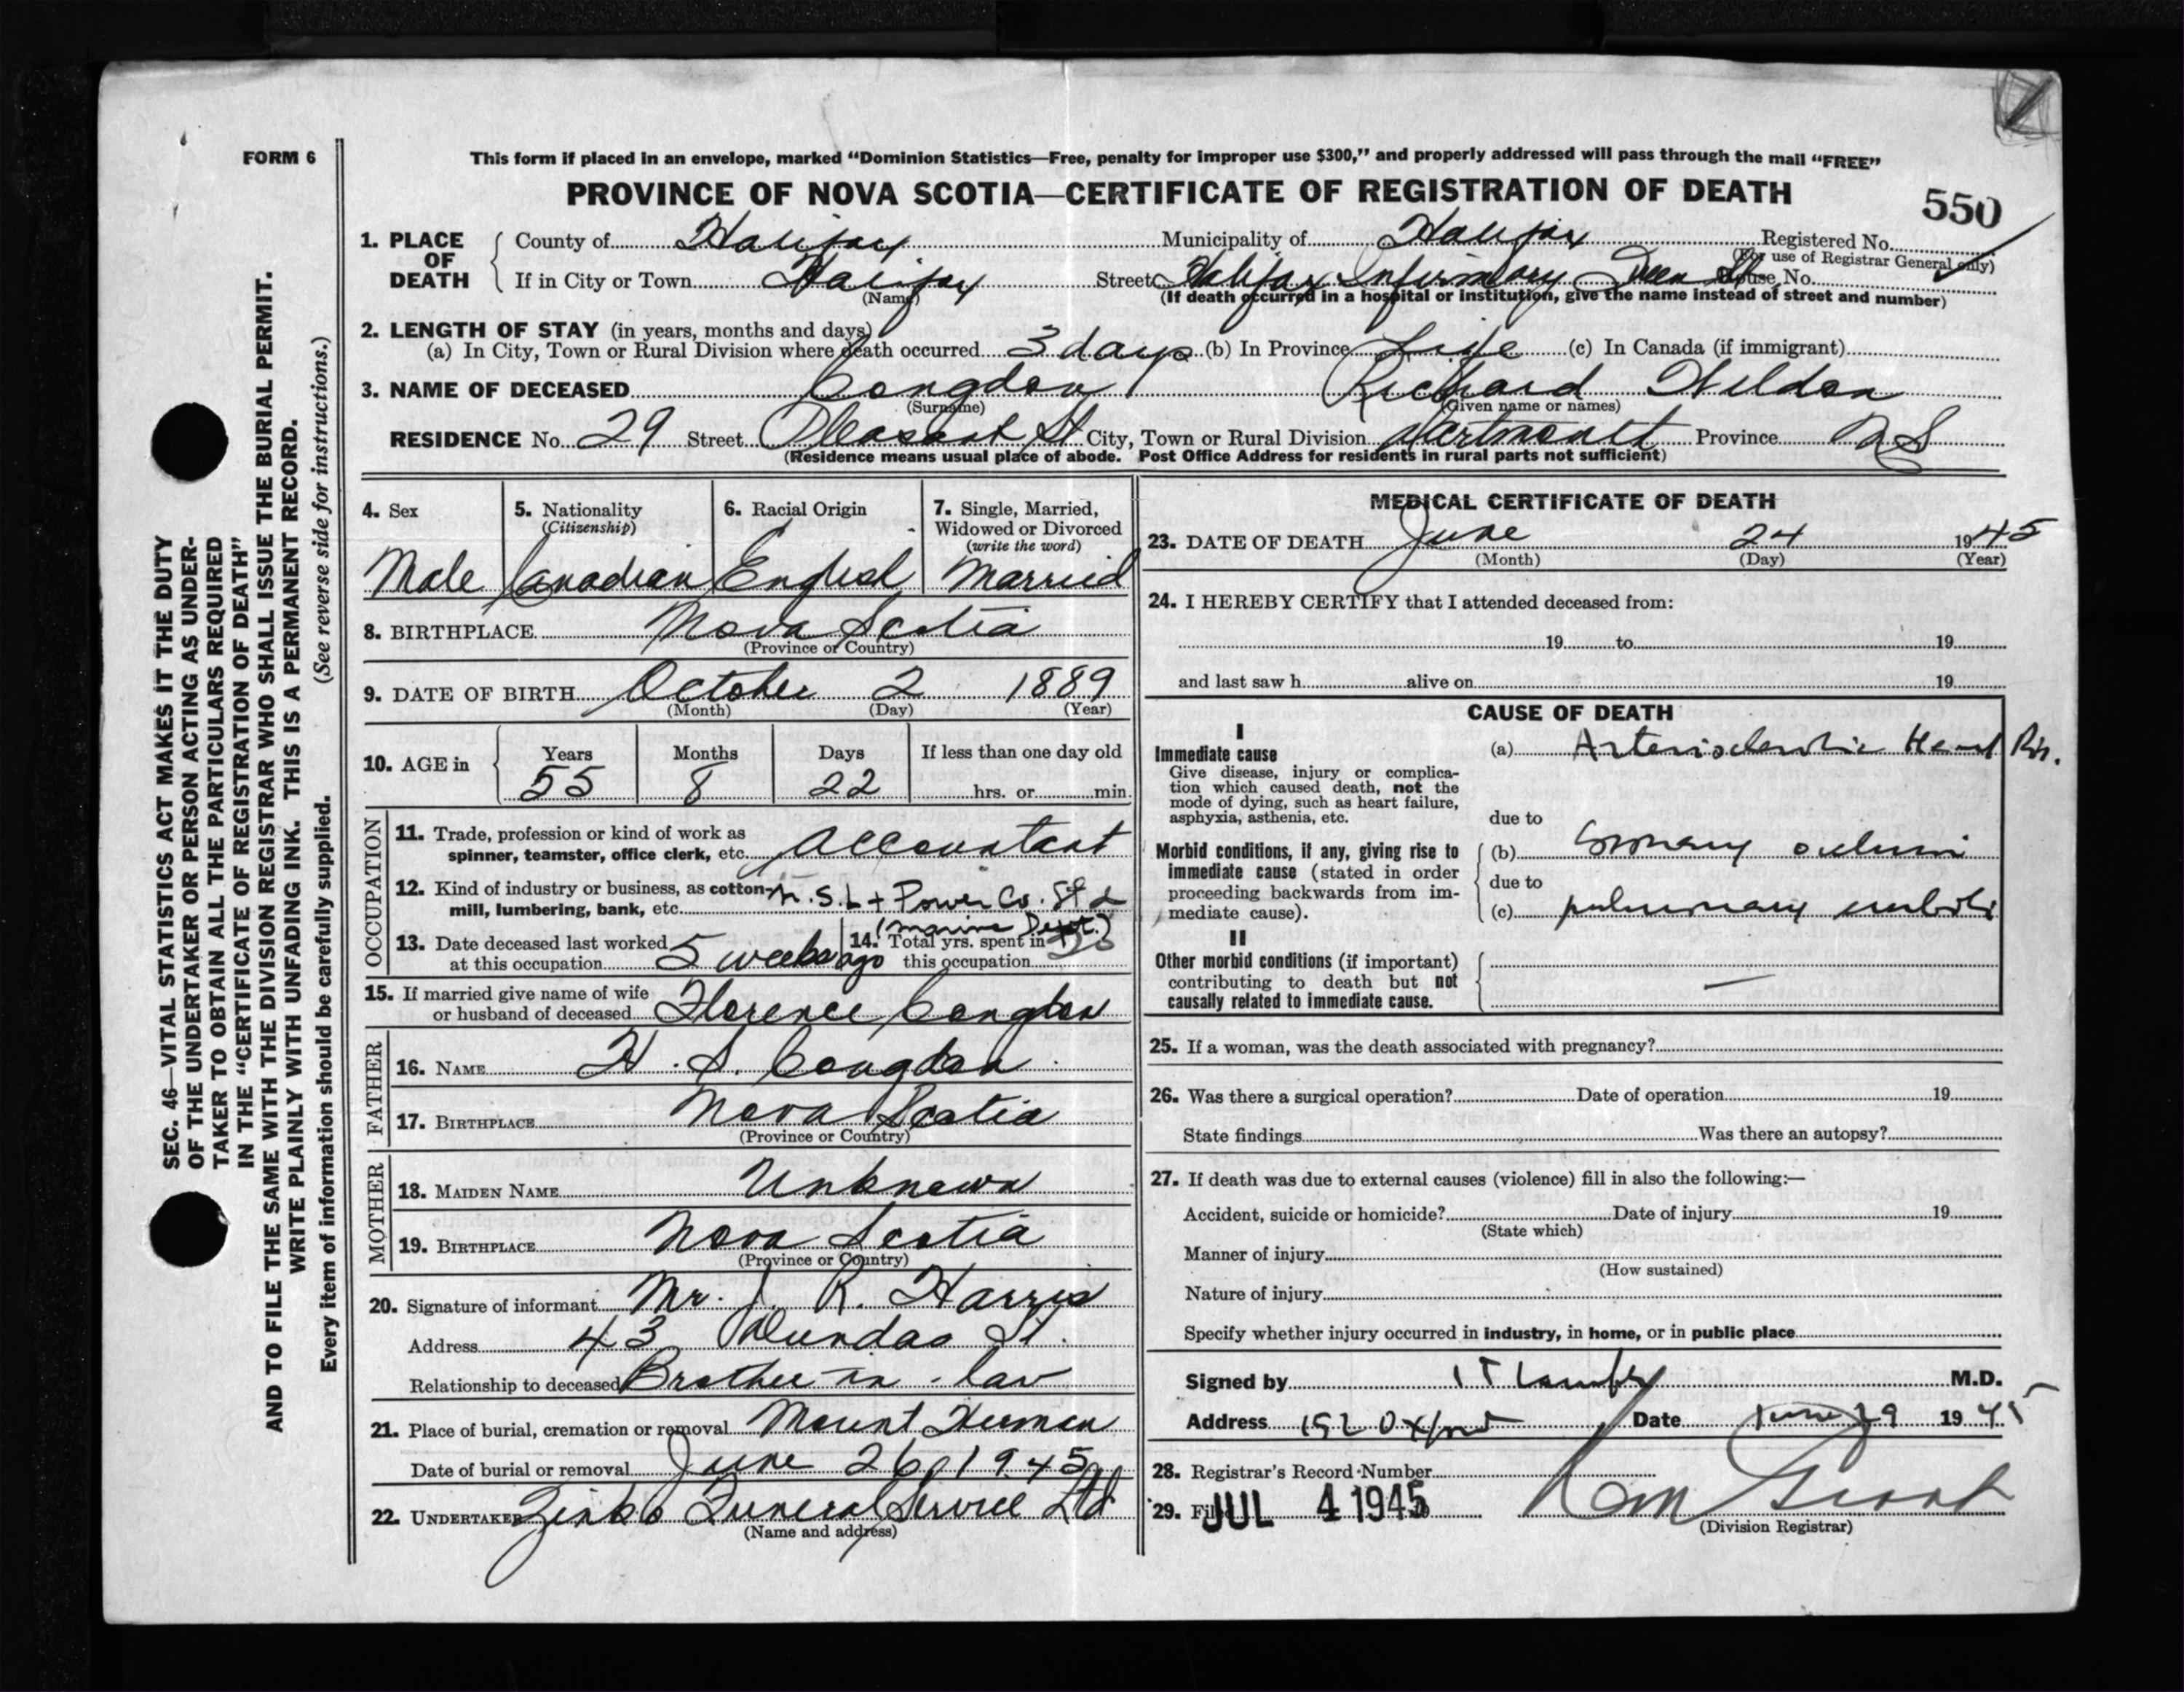 FORM 6
This form if placed in an envelope, marked “Dominion Statistics—Free, penalty for improper use $300,” and properly addressed will pass through the mail “FREE”
PROVINCE OF NOVA SCOTIA—CERTIFICATE OF REGISTRATION OF DEATH
550
1. PLACE OF DEATH
County of Halifax Municipality of Halifax Registered No.
(For use of Registrar General only)
If in City or Town Halifax Street Halifax Infirmary Queen St House No.
(Name) (If death occurred in a hospital or institution, give the name instead of street and number)
2. LENGTH OF STAY (in years, months and days)
(a) In City, Town or Rural Division where death occurred 3 days (b) In Province Life (c) In Canada (if immigrant)
3. NAME OF DECEASED Congdon Richard Weldon
(Surname) (Given name or names)
RESIDENCE No. 29 Street Pleasant St City, Town or Rural Division Dartmouth Province N S
(Residence means usual place of abode. Post Office Address for residents in rural parts not sufficient)
4. Sex
Male
5. Nationality
(Citizenship)
Canadian
6. Racial Origin
English
7. Single, Married,
Widowed or Divorced
(write the word)
Married
8. BIRTHPLACE Nova Scotia
(Province or Country)
9. DATE OF BIRTH October 2 1889
(Month) (Day) (Year)
10. AGE in
Years Months Days If less than one day old
55 8 22 hrs. or min.
OCCUPATION
11. Trade, profession or kind of work as
spinner, teamster, office clerk, etc. Accountant
12. Kind of industry or business, as cotton-
mill, lumbering, bank, etc. N.S.L + Power Co. Ltd
(Marine Dept.)
13. Date deceased last worked
at this occupation 5 weeks ago
14. Total yrs. spent in
this occupation
15. If married give name of wife
or husband of deceased Florence Congdon
FATHER
16. NAME H. S. Congdon
17. BIRTHPLACE Nova Scotia
(Province or Country)
MOTHER
18. MAIDEN NAME Unknown
19. BIRTHPLACE Nova Scotia
(Province or Country)
20. Signature of informant Mr. J. R. Harris
Address 43 Dundas St.
Relationship to deceased Brother-in-law
21. Place of burial, cremation or removal Mount Hermon
Date of burial or removal June 26, 1945
22. UNDERTAKER Zinks Funeral Service Ltd
(Name and address)
MEDICAL CERTIFICATE OF DEATH
23. DATE OF DEATH June 24 1945
(Month) (Day) (Year)
24. I HEREBY CERTIFY that I attended deceased from:
19 to 19
and last saw h alive on 19
CAUSE OF DEATH
I
Immediate cause
Give disease, injury or complica-
tion which caused death, not the
mode of dying, such as heart failure,
asphyxia, asthenia, etc.
(a) Arteriosclerotic Heart Dis.
due to
Morbid conditions, if any, giving rise to
immediate cause (stated in order
proceeding backwards from im-
mediate cause).
(b) Coronary occlusion
due to
(c) pulmonary emboli
II
Other morbid conditions (if important)
contributing to death but not
causally related to immediate cause.
—
25. If a woman, was the death associated with pregnancy?
26. Was there a surgical operation? Date of operation 19
State findings Was there an autopsy?
27. If death was due to external causes (violence) fill in also the following:—
Accident, suicide or homicide? Date of injury 19
(State which)
Manner of injury
(How sustained)
Nature of injury
Specify whether injury occurred in industry, in home, or in public place
Signed by M.D.
Address Date June 29 1945
28. Registrar's Record Number
29. Filed JUL 4 1945
(Division Registrar)
SEC. 46—VITAL STATISTICS ACT MAKES IT THE DUTY
OF THE UNDERTAKER OR PERSON ACTING AS UNDER-
TAKER TO OBTAIN ALL THE PARTICULARS REQUIRED
IN THE “CERTIFICATE OF REGISTRATION OF DEATH”
AND TO FILE THE SAME WITH THE DIVISION REGISTRAR WHO SHALL ISSUE THE BURIAL PERMIT.
WRITE PLAINLY WITH UNFADING INK. THIS IS A PERMANENT RECORD.
Every item of information should be carefully supplied. (See reverse side for instructions.)